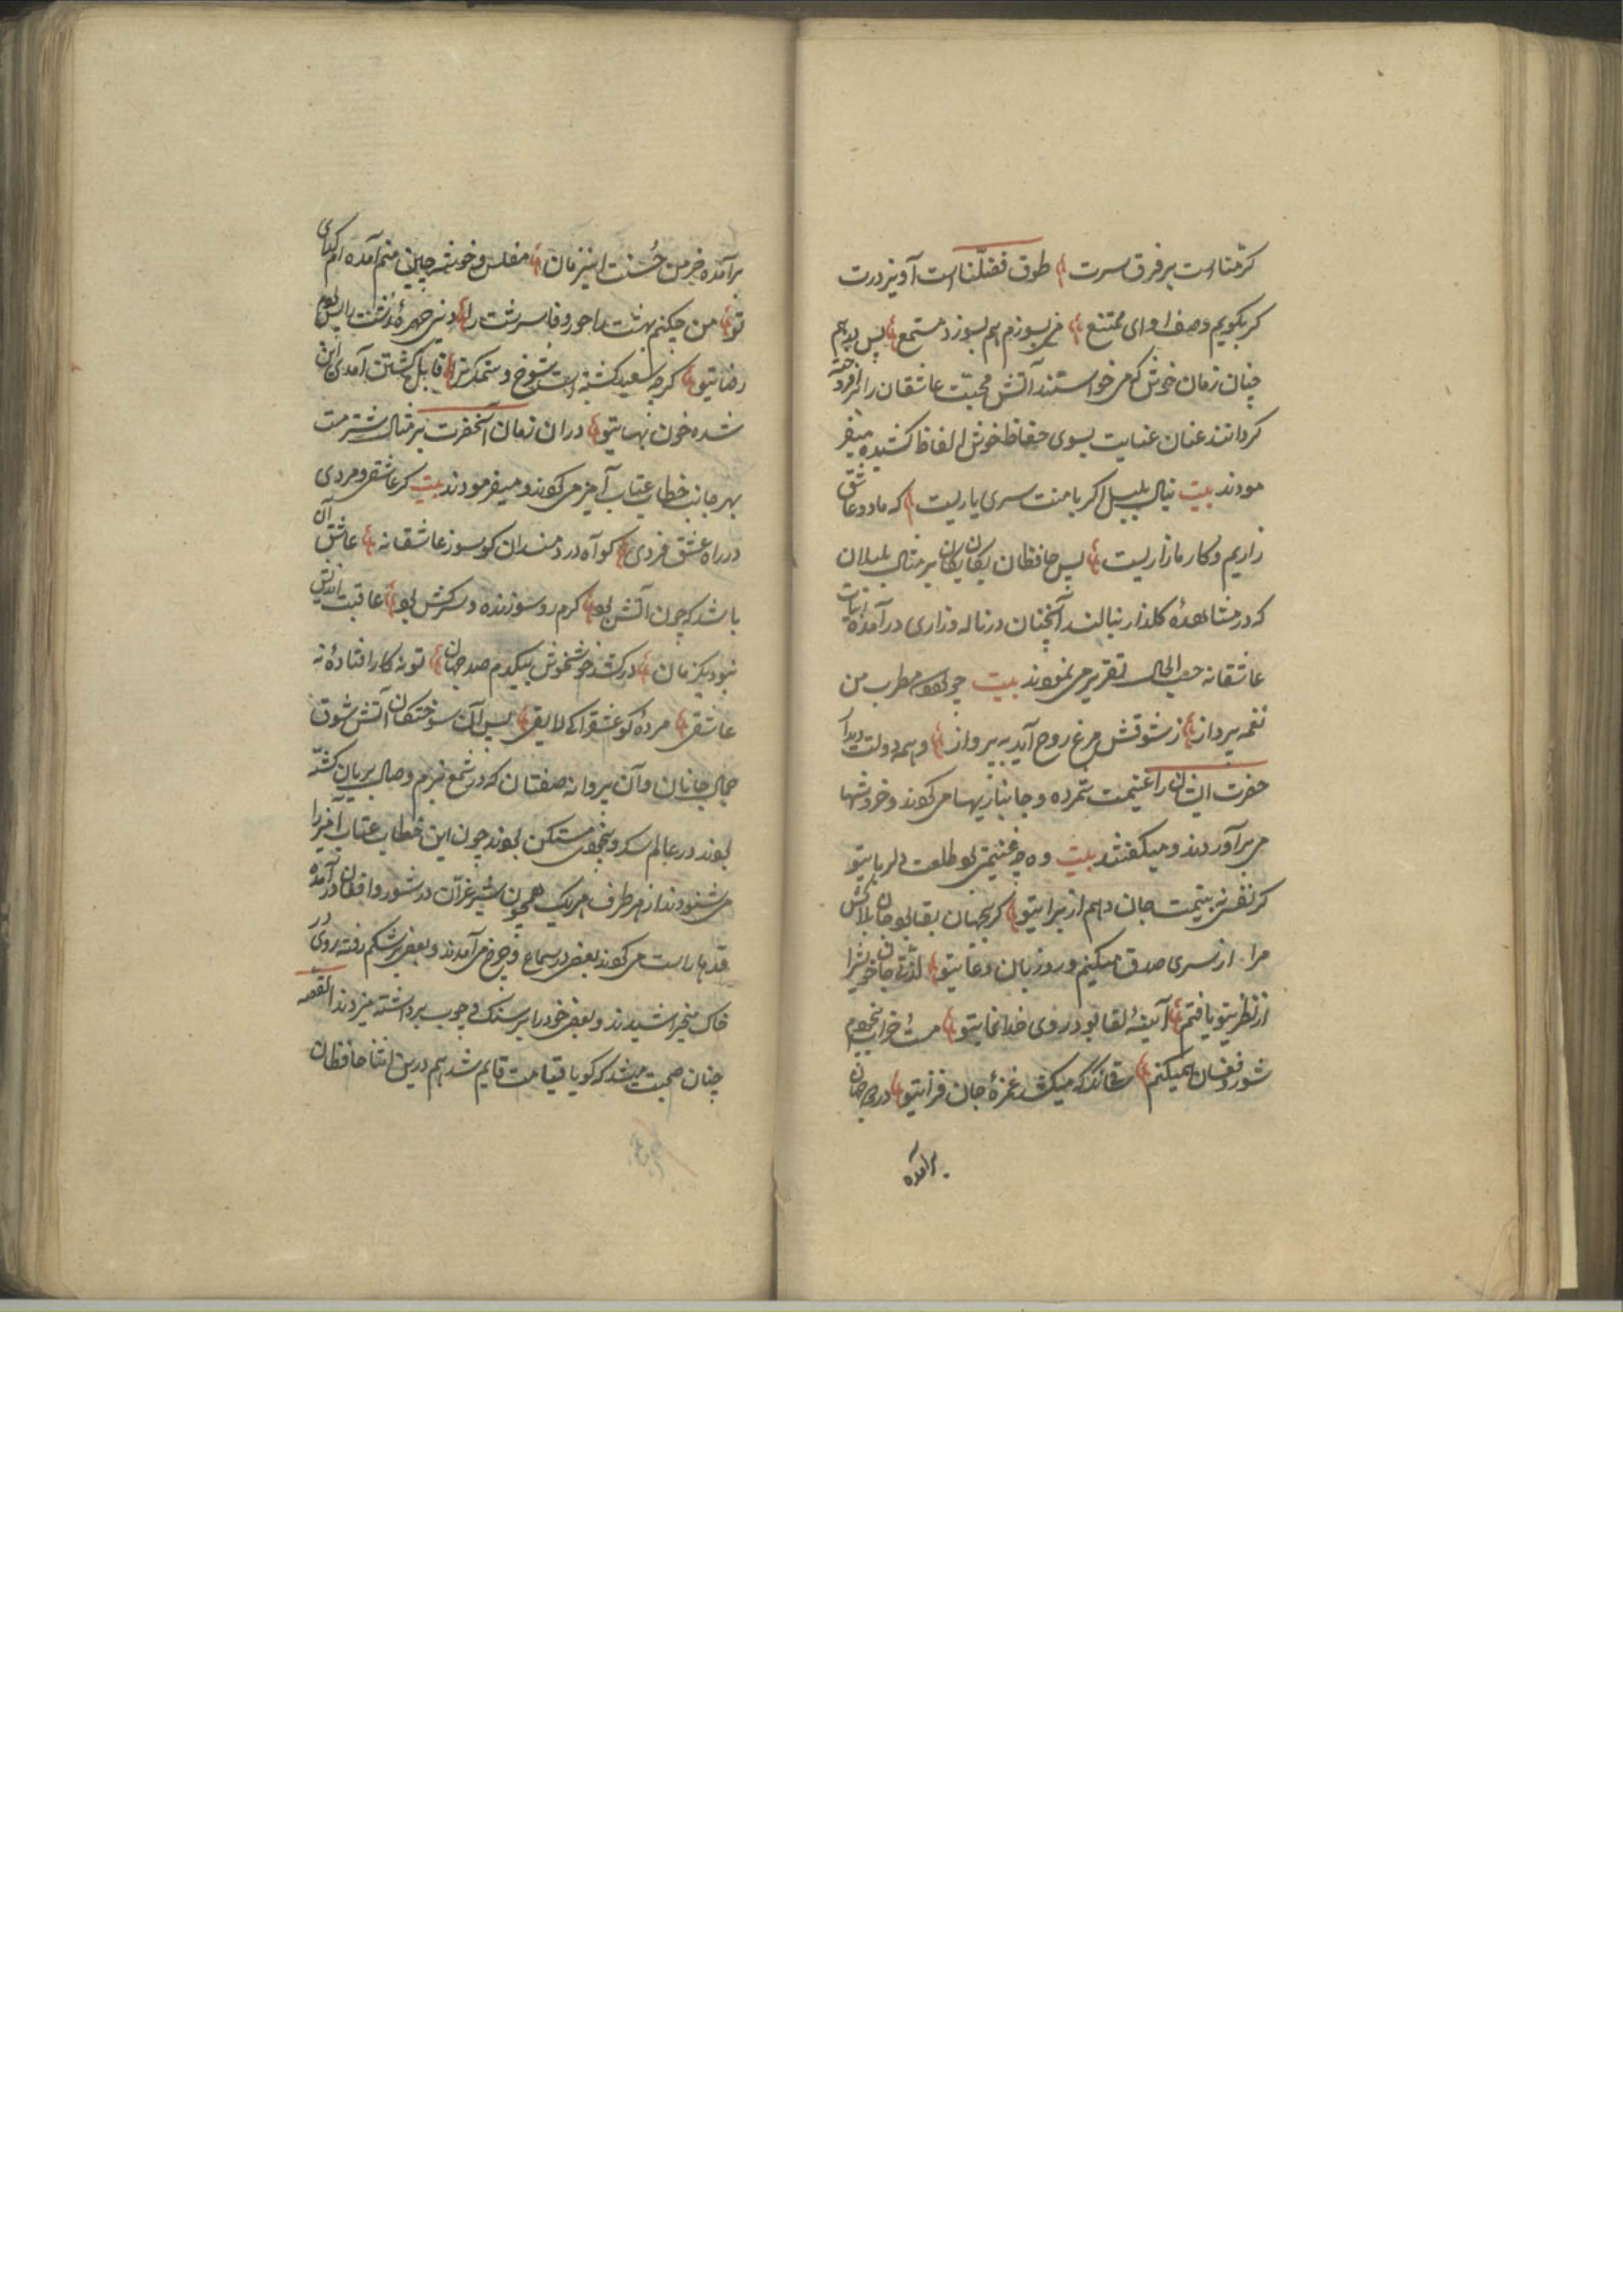 کرمنا است بر فرق سرت طوق فضلنا است آویز درت
کر بکویم وصف او ای ممتنع من بسوزم هم بسوزد مستمع پس چو هم
چنان زمان خوش کم می خواستند آتش محبت عاشقان را افروخته
کردانند عنان عنایت بسوی حفاظ خوش الفاظ کشیده میفر
مودند بیت بنال بلبل اکر با منت سری یاریست که ما دو عاشق
زاریم و کار ما زاریست پس حافظان یکان یکان بر مثال بلبلان
که در مشاهدهٔ کلذار بنالند آنچنان در ناله وزاری درآمده ابیات
عاشقانه حسب الحال تقریر می نمودند بیت چو شود مطرب من
نغمه پرداز ز شوقش مرغ روح آید به پرواز و همه دولت دیدار
حضرت ایشان را غنیمت شمرده و جانبازیها می کردند و خروشها
می برآوردند و میکفتند بیت وه چه غنیمتی بود طلعت دلربای تو
کر نفسی به بینمت جان دهم از برای تو کر بجهان بقا بود جان بلاکش
مرا از سری صدق میکنم ورد زبان دعای تو لذتی جان خویش را
از نظر تو یافتم آینهٔ لقا بود روی خدانمای تو مست خراب بیخودم
شور و فغان همیکنم غمزهٔ جان فزای تو در همه جهان
برآمده
برآمده خرمن حسنت این زمان مفلس و خوشه چین منم آمده ام کدای
تو من چکنم بهشت را حور و قاسرشت را
رضای تو کرچه سعید کشته است شوخ و ستمکر ترا قابل کشتن آمدی این
شده خون بهای تو دران زمان آنحضرت بر مثال شتر مست
بهر جانب خطاب عتاب آمیز می کردند و میفرمودند بیت کر عاشقی و مردی
در راه عشق فردی کو آه دردمندان کو سوز عاشقانه عاشق آن
باشد که چون آتش بود کرم رو سوزنده و سرکش بود عاقبت اندیش
نبود یکزمان درکشد خوش خوش بیکدم صد جهان تو نه کار افتادهٔ نه
عاشقی مردهٔ تو عشق را کی لایقی پس آن سوختکان آتش شوق
جمال جانان و آن پروانه صفتان که در شمع بزم وصال بریان کشته
بودند در عالم سکر و بیخودی متمکن بودند چون این خطاب عتاب آمیز را
می شنودند از هر طرف هر یک همچون شیر غران در شور و افغان درآمده
قدها راست می کردند بعضی در سماع و چرخ می آمدند و بعضی بر شکم رفته روی در
خاک میخراشیدند و بعضی خود را بر سنک و چوب برداشته میزدند القصه
چنان صحبت میشد که کویا قیامت قایم شد هم درین اثنا حافظان